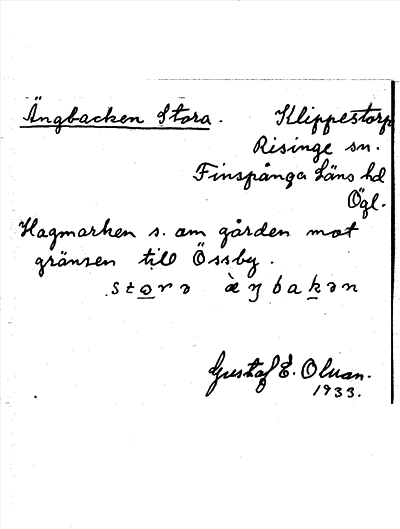 Ängbacken Stora. Klippestorp
Risinge sn.
Finspånga Läns hd
Ögl.
Hagmarken s. om gården mot
gränsen till Össby.
storə æ̀ŋbakən
Gustaf E. Olsson.
1933.